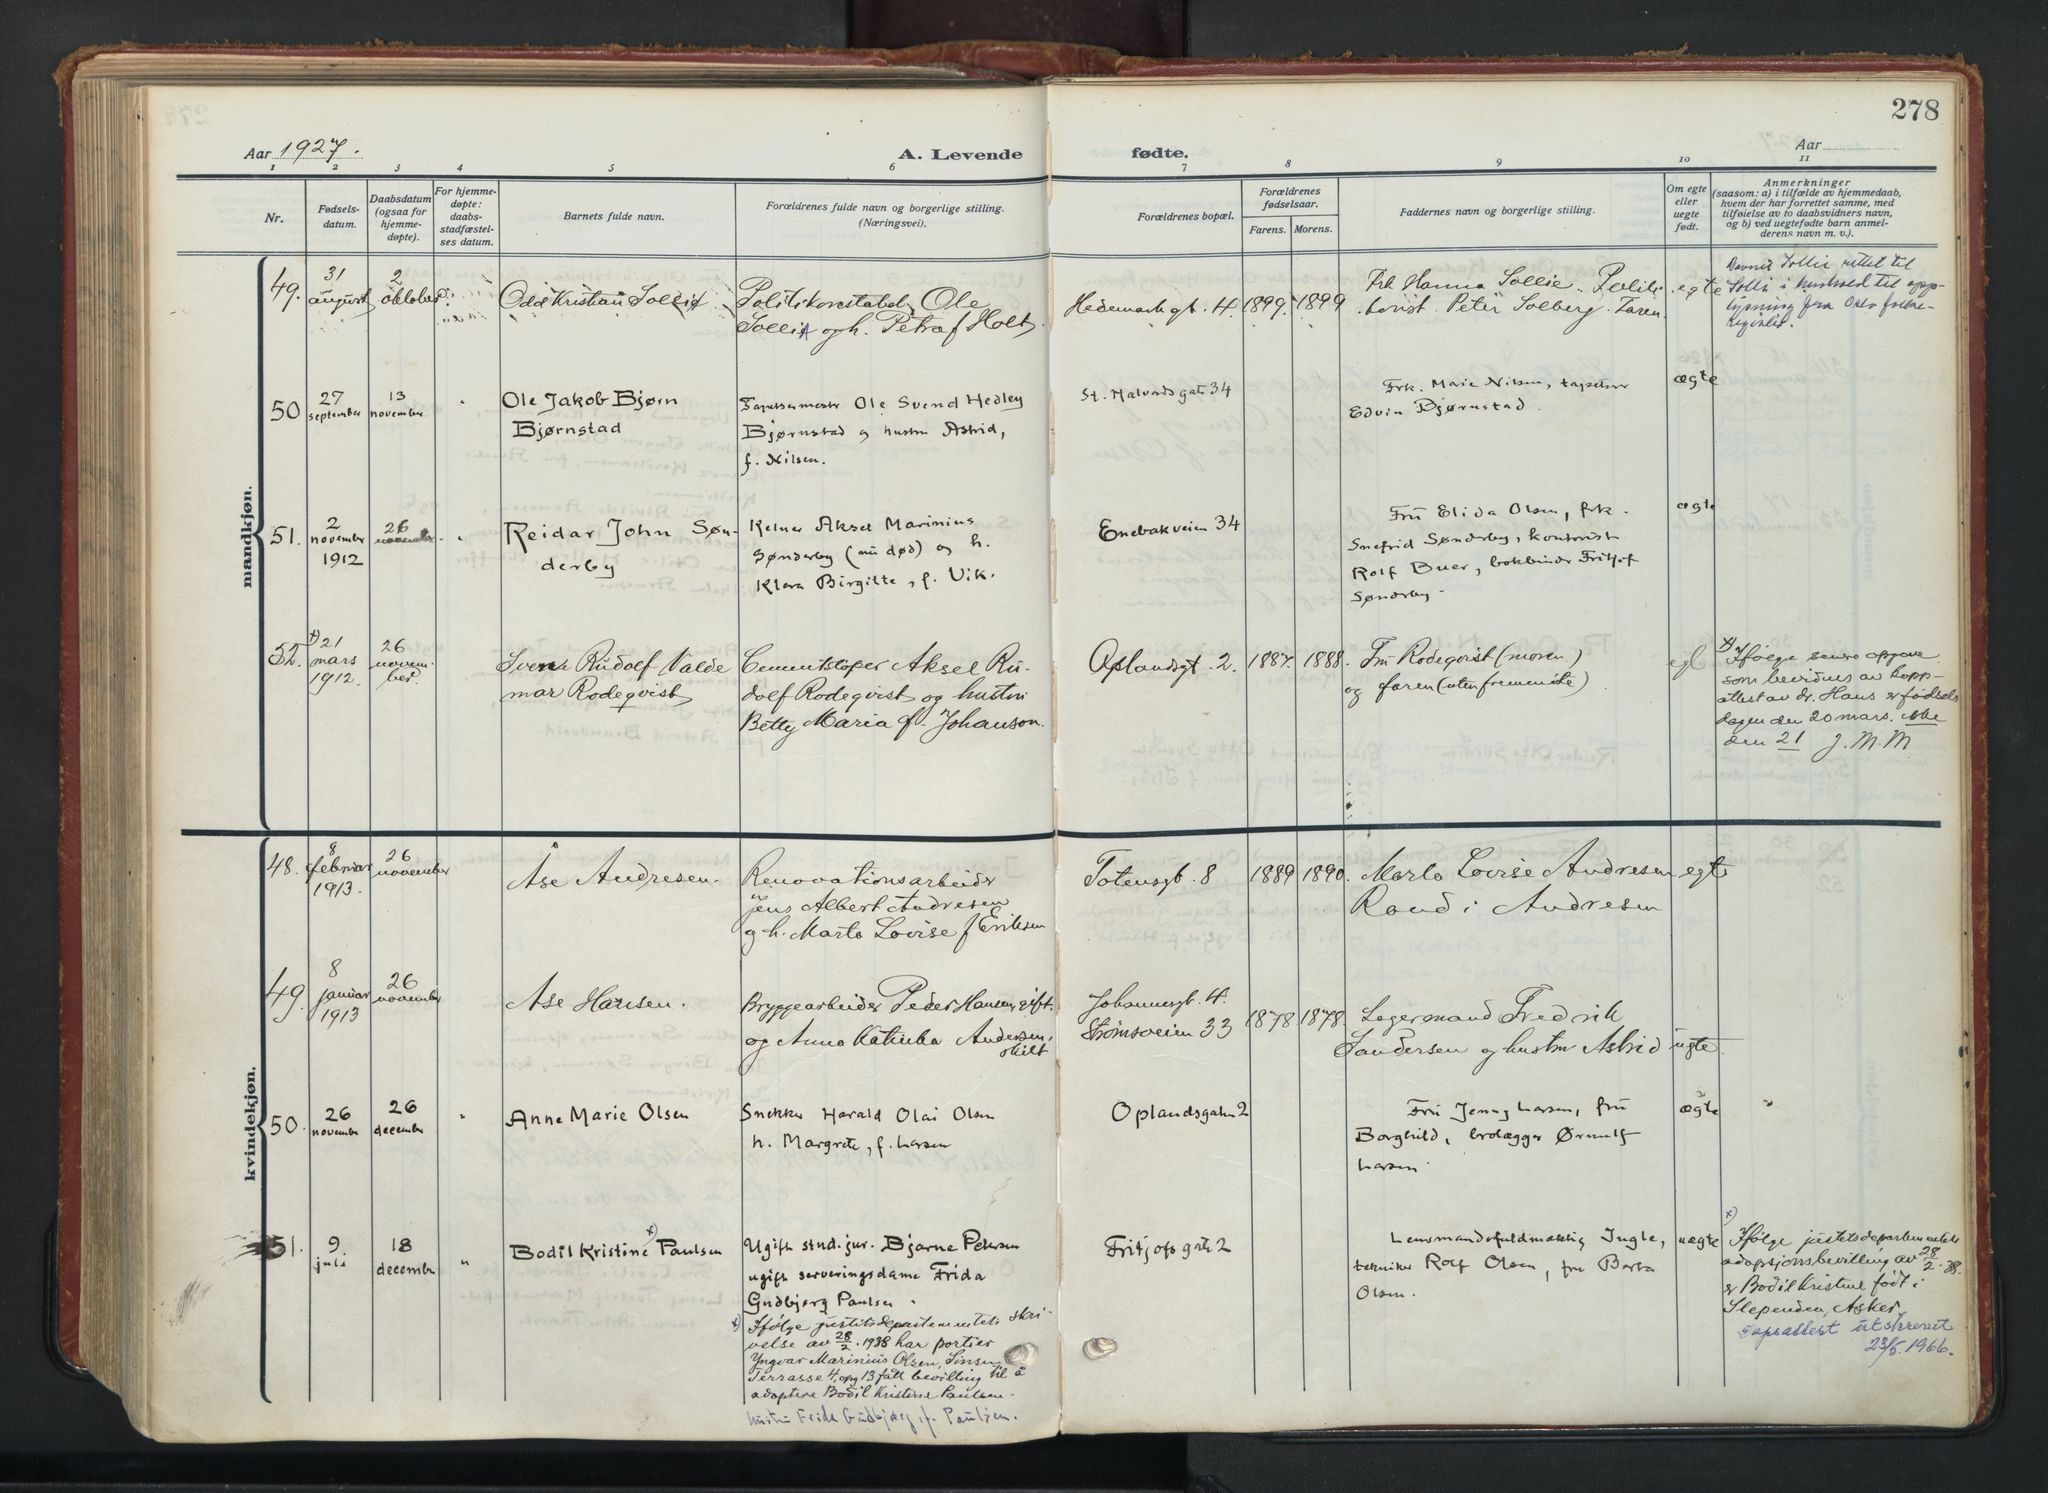 278
Aar 1927.
A. Levende
fødte.
Aar
1 2 3 4 5 6 7 8 9 10 11
Nr.
Fødsels-
datum.
Daabsdatum
(ogsaa for
hjemme-
døpte).
For hjemme-
døpte:
daabs-
stadfæstel-
ses datum.
Barnets fulde navn.
Forældrenes fulde navn og borgerlige stilling.
(Næringsvei).
Forældrenes bopæl.
Forældrenes
fødselsaar.
Farens. Morens.
Faddernes navn og borgerlige stilling.
Om egte
eller
uegte
født.
Anmerkninger
(saasom: a) i tilfælde av hjemmedaab,
hvem der har forrettet samme, med
tilføielse av to daabsvidners navn,
og b) ved uegtefødte barn anmel-
derens navn m. v.).
mandkjøn.
49.
31
august
2
oktober
Odd Kristian Solli
Politikonstabel Ole
Solli og h. Petra f Holt.
Hedemarkgt. 4
1899.
1899
Frk Hanna Sollie. Politi-
Peter Solberg. Faren.
egte
Navnet Sollie rettet til
Solli i henhold til opp-
lysning fra Oslo folke-
50
27
september
13
november
"
Ole Jakob Bjørn
Bjørnstad
Tapetsermester Ole Svend Hedley
Bjørnstad og hustru Astrid,
f. Nilsen.
St. Halvardsgate 34
Frk. Marie Nilsen, tapetserer
Edvin Bjørnstad.
ægte
51.
2
november
1912
26
november
"
Reidar John Søn-
derby
Kelner Aksel Marinius
Sønderby (nu død) og h.
Klara Birgitte, f. Vik.
Enebakveien 34
Fru Elida Olsen, frk.
Snefrid Sønderby, kontorist
Rolf Buer, bokbinder Fritjof
Sønderby.
ægte
52.
x) 21
mars
1912.
26
novem-
ber
Svend Rudolf Valde
mar Rodeqvist
Cementstøper Aksel Ru-
dolf Rodeqvist og hustru
Betty Maria f. Johanson.
Oplandsgt. 2.
1887.
1888.
Fru Rodeqvist (moren)
og faren (uten fremmøte)
egte
x) Ifølge senere opgave
som bevidnes av kopp-
attest av dr. Hans er fødsels
dagen den 20 mars. ikke
den 21 J. M. M
kvindekjøn.
48.
8
februar
1913.
26
november
Åse Andresen.
Renovationsarbeider
Jens Albert Andresen
og h. Marta Lovise f Eriksen
Totensgt. 8
1889
1890.
Marta Lovise Andresen
Randi Andresen
egte
49.
8
januar
1913
26
november
Åse Hansen.
Bryggearbeider Peder Hansen, gift.
og Anna Katinka Andersen,
skilt
Johannesgt. 4.
Strømsveien 33
1878
1878.
Lagermand Fredrik
Sandersen og hustru Astrid
uegte.
50.
26
november
26
december
"
Anne Marie Olsen
Snekker Harald Olai Olsen
h. Margrete, f. Larsen
Oplandsgaten 2
Fru Jenny Larsen, fru
Borghild, brolægger Ørnulf
Larsen.
ægte
"
51.
9
juli
18
december
"
Bodil Kristine x) Paulsen
Ugift stud. jur. Bjarne Petersen
ugift serveringsdame Frida
Gudbjørg Paulsen.
x) Ifølge justitsdepartementets skri-
velse av 28/2. 1938 har portier
Yngvar Marinius Olsen, Sinsen
Terrasse 4, opg 13 fått bevilling til å
adoptere Bodil Kristine Paulsen.
hustru Frida Gudbjørg f. Paulsen.
Fritjofsgate 2
Lensmandsfuldmektig Ingle,
tekniker Rolf Olsen, fru Berta
Olsen.
uægte
x) Ifølge justitsdepartementets
adopsjonsbevilling av 28/2. 38.
er Bodil Kristine født i
Slependen, Asker
Dåpsattest utskrevet
23/5. 1966.